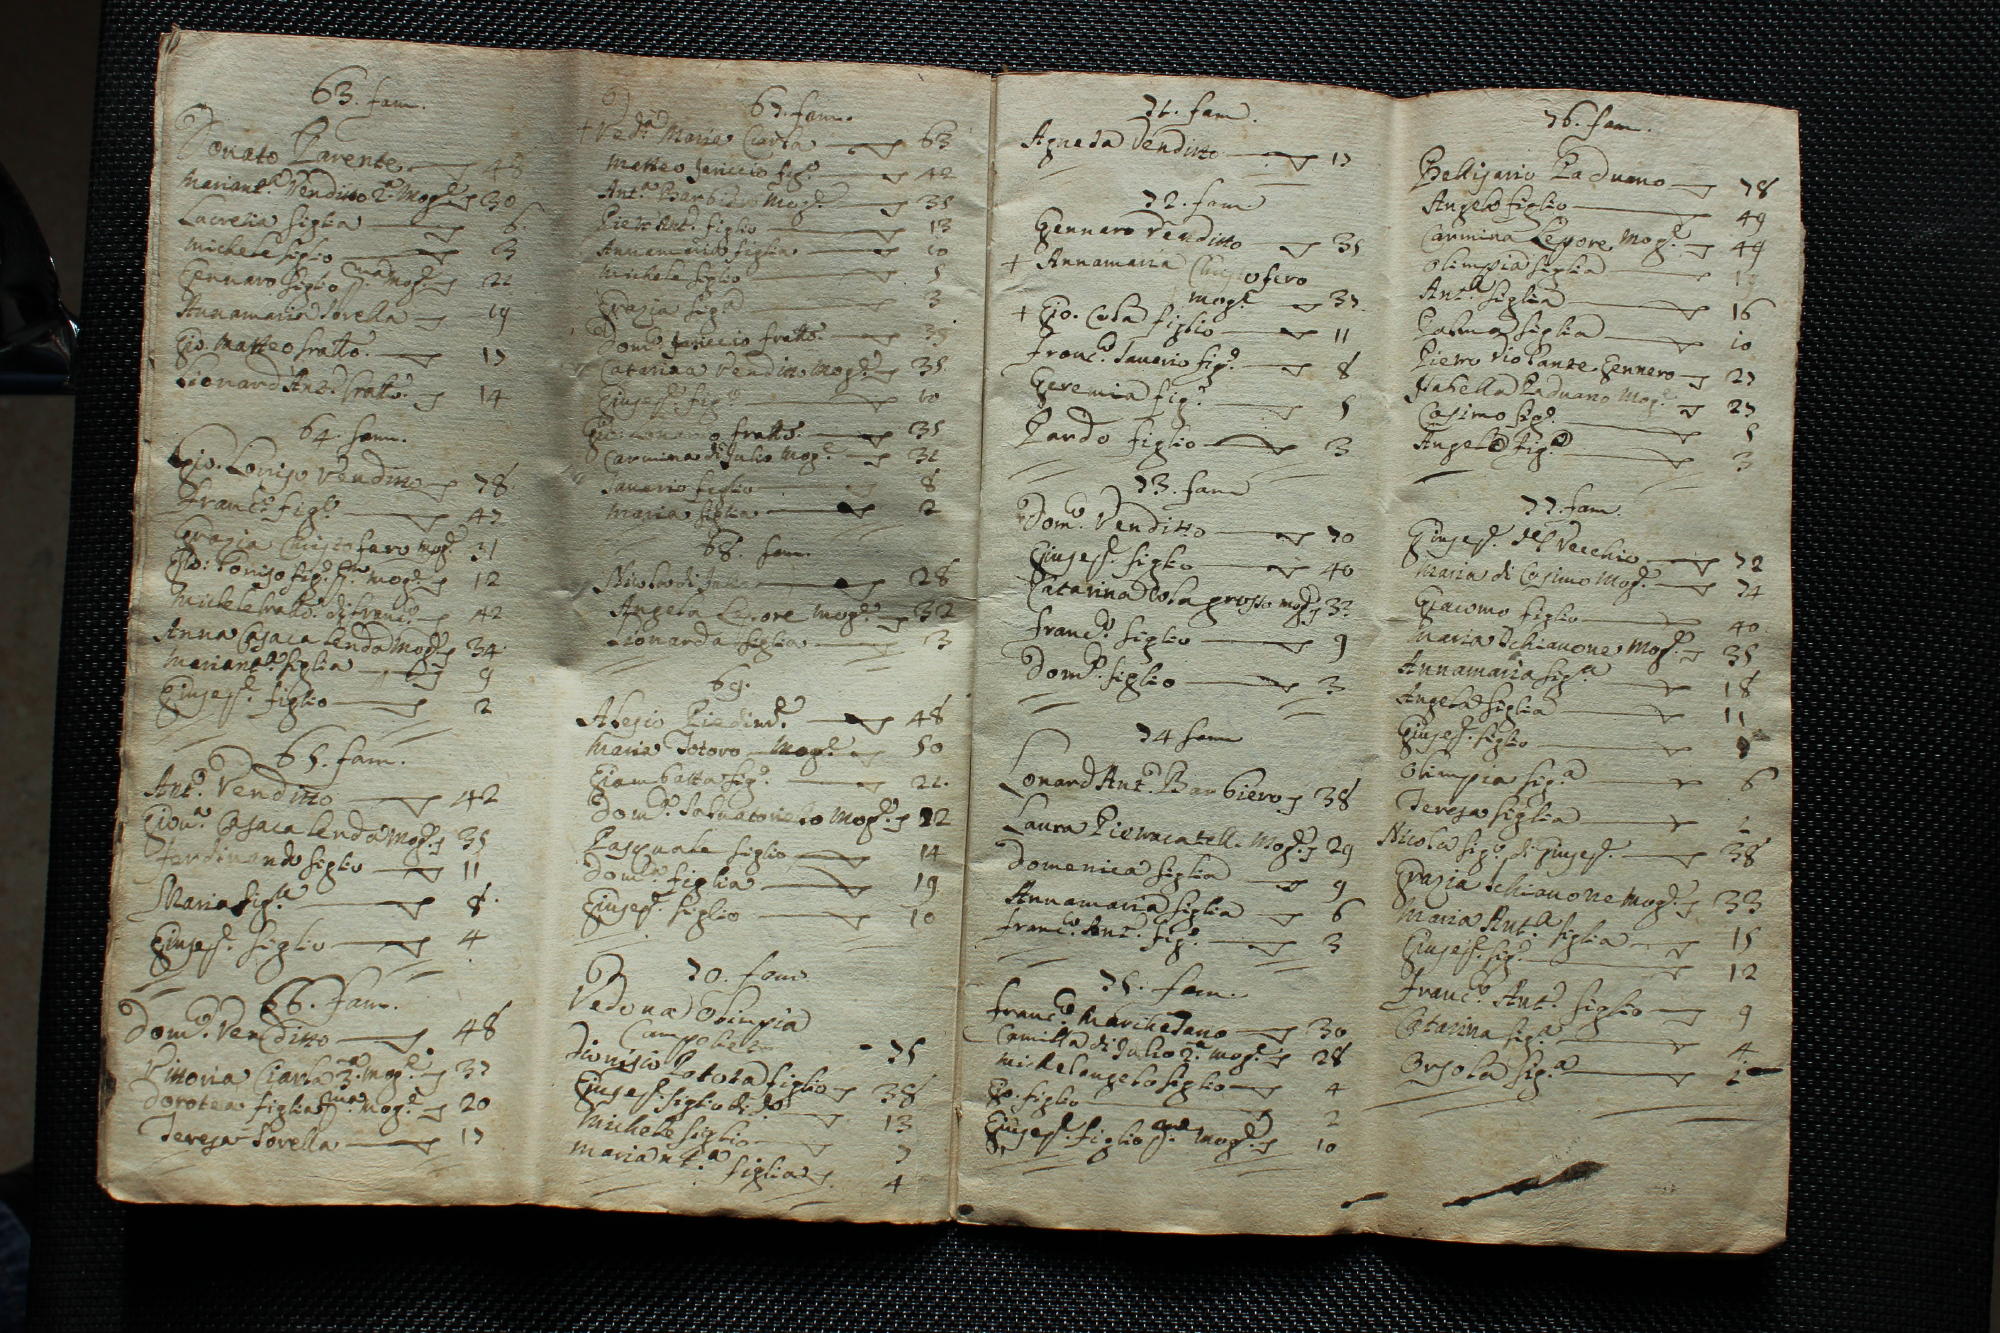 63. fam.
Donato Parente 48
Mariant.ª Venditto 2.ª Mog.e 30
Lucretia figlia 6
Michele figlio 3
Gennaro figlio p.mª Mog.e 22
Annamaria sorella 19
Gio. Matteo fratto. 17
Lionard'Ant.º fratto. 14
64. fam.
Gio. Loniso Venditto 78
Franc.º figlo 47
Grazia Cristofaro Mog.e 31
Gio: Loniso fig.º p.mª mog.e 12
Michele fratto. di Franc.º 42
Anna Casacalenda Mog.e 34
Mariant.ª figlia 9
Giusep.e figlio 2
65. fam.
Ant.º Venditto 42
Giov.ª Casacalenda Mog.e 35
Ferdinando figlio 11
Maria fig.ª 8
Giusep.e figlio 4
66. fam.
Dom.º Venditto 48
Vittoria Ciarla 3.ª mog.e 37
Dorotea figlia p.mª mog.e 20
Teresa sorella 17
67. fam.
+ Ved.ª Maria Ciarla 63
Matteo Iariccio fig.º 42
Ant.ª Barbiero Mog.e 35
Pietr'Ant.º figlio 13
Annamaria figlia 10
Michele figlio 5
Grazia figª 3
Dom.º Iariccio fratto. 39
Catarina Venditto Mog.e 35
Giusep.e fig.º 10
Gio: Lonardo fratto. 35
Carmina di Iulio Mog.e 32
Saverio figlio 8
Maria figlia 2
68. fam.
Nicola di Iulio 28
Angela Lepore mog.e 32
Lionarda figlia 3
69.
Alesio Piedim.e 48
Maria Totoro Mog.e 50
Giambatta fig.º 22.
Dom.ª Salvatoriello Mog.e 22
Pasquale figlio 14
Dom.ª figlia 19
Giusep.e figlio 10
70. fam.
Vedova Olimpia
Campolieto 75
Dionisio Potota figlio 38
Giusep.e figlio di d.º 13
Michele figlio 7
Mariant.ª figlia 4
71. fam.
Agnesa Venditto 17
72. fam.
Gennaro Venditto 35
+ Annamaria Cristofero
mog.e 37
+ Gio. Cola figlio 11
Franc.º Saverio fig.º 8
Geremia fig.º 5
Pardo figlio 3
73. fam
Dom.º Venditto 70
Giusep.e figlio 40
Catarina Colagrosso mog.e 37
Franc.º figlio 9
Dom.º figlio 3
74 fam
Lonard'Ant.º Barbiero 38
Laura Pietracatell.a Mog.e 29
Domenica figlia 9
Annamaria figlia 6
Franc.º Ant.º fig.º 3
75. fam.
Franc.º Marchesano 30
Camilla di Iulio 2.ª mog.e 28
Michelangelo figlio 4
Gio. figlio 2
Giusep.e figlio p.ma mog.e 10
76. fam.
Bellisario Paduano 78
Angelo figlio 49
Carmina Lepore Mog.e 49
Olimpia figlia 19
Ant.ª figlia 16
Palma figlia 10
Pietro Gennero 27
Isabella Paduano Mog.e 27
Casimo fig.º 5
Angelo fig.º 3
77. fam.
Giusep.e del Vecchio 72
Maria di Cosimo Mog.e 74
Giacomo figlio 40
Maria Schiavone Mog.e 35
Annamaria fig.ª 18
Angela figlia 11
Giusep.e figlio 9
Olimpia fig.ª 6
Teresa figlia 2
Nicola fig.º di Giusep.e 38
Grazia Schiavone mog.e 33
Maria Ant.ª figlia 15
Giusep.e fig.º 12
Franc.º Ant.º figlio 9
Catarina fig.ª 4
Orsola fig.ª 2